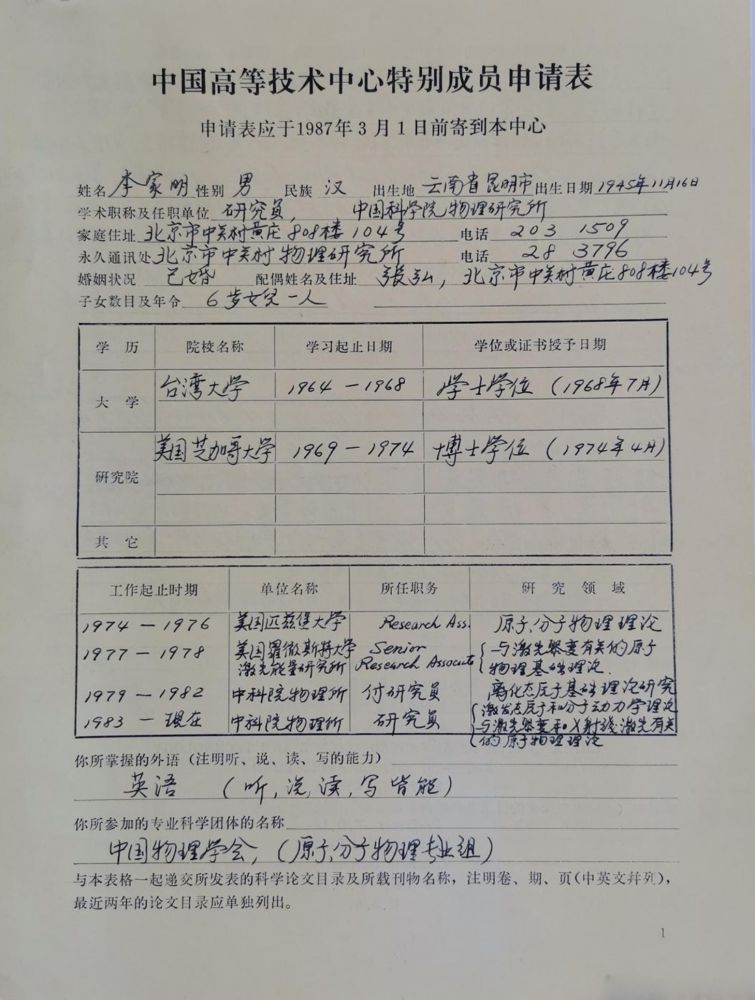 中国高等技术中心特别成员申请表
申请表应于1987年3月1日前寄到本中心
姓名 李家明 性别 男 民族 汉 出生地 云南省昆明市 出生日期 1945年11月16日
学术职称及任职单位 研究员, 中国科学院物理研究所
家庭住址 北京市中关村黄庄808楼104号 电话 203 1509
永久通讯处 北京市中关村物理研究所 电话 28 3796
婚姻状况 已婚 配偶姓名及住址 张弘, 北京市中关村黄庄808楼104号
子女数目及年令 6岁女儿一人
学历 院校名称 学习起止日期 学位或证书授予日期
大学 台湾大学 1964-1968 学士学位 (1968年7月)
研究院 美国芝加哥大学 1969-1974 博士学位 (1974年4月)
其它
工作起止时期 单位名称 所任职务 研究领域
1974-1976 美国匹兹堡大学 Research Ass. 原子、分子物理理论
1977-1978 美国罗彻斯特大学激光能量研究所 Senior Research Associate 与激光聚变有关的原子物理基础理论
1979-1982 中科院物理所 付研究员 离化态原子基础理论研究
1983-现在 中科院物理所 研究员 激发态原子和分子动力学理论 与激光聚变和X射线激光有关的原子物理理论
你所掌握的外语(注明听、说、读、写的能力)
英语 (听,说,读,写皆能)
你所参加的专业科学团体的名称
中国物理学会, (原子、分子物理专业组)
与本表格一起递交所发表的科学论文目录及所载刊物名称,注明卷、期、页(中英文并列),
最近两年的论文目录应单独列出。
1